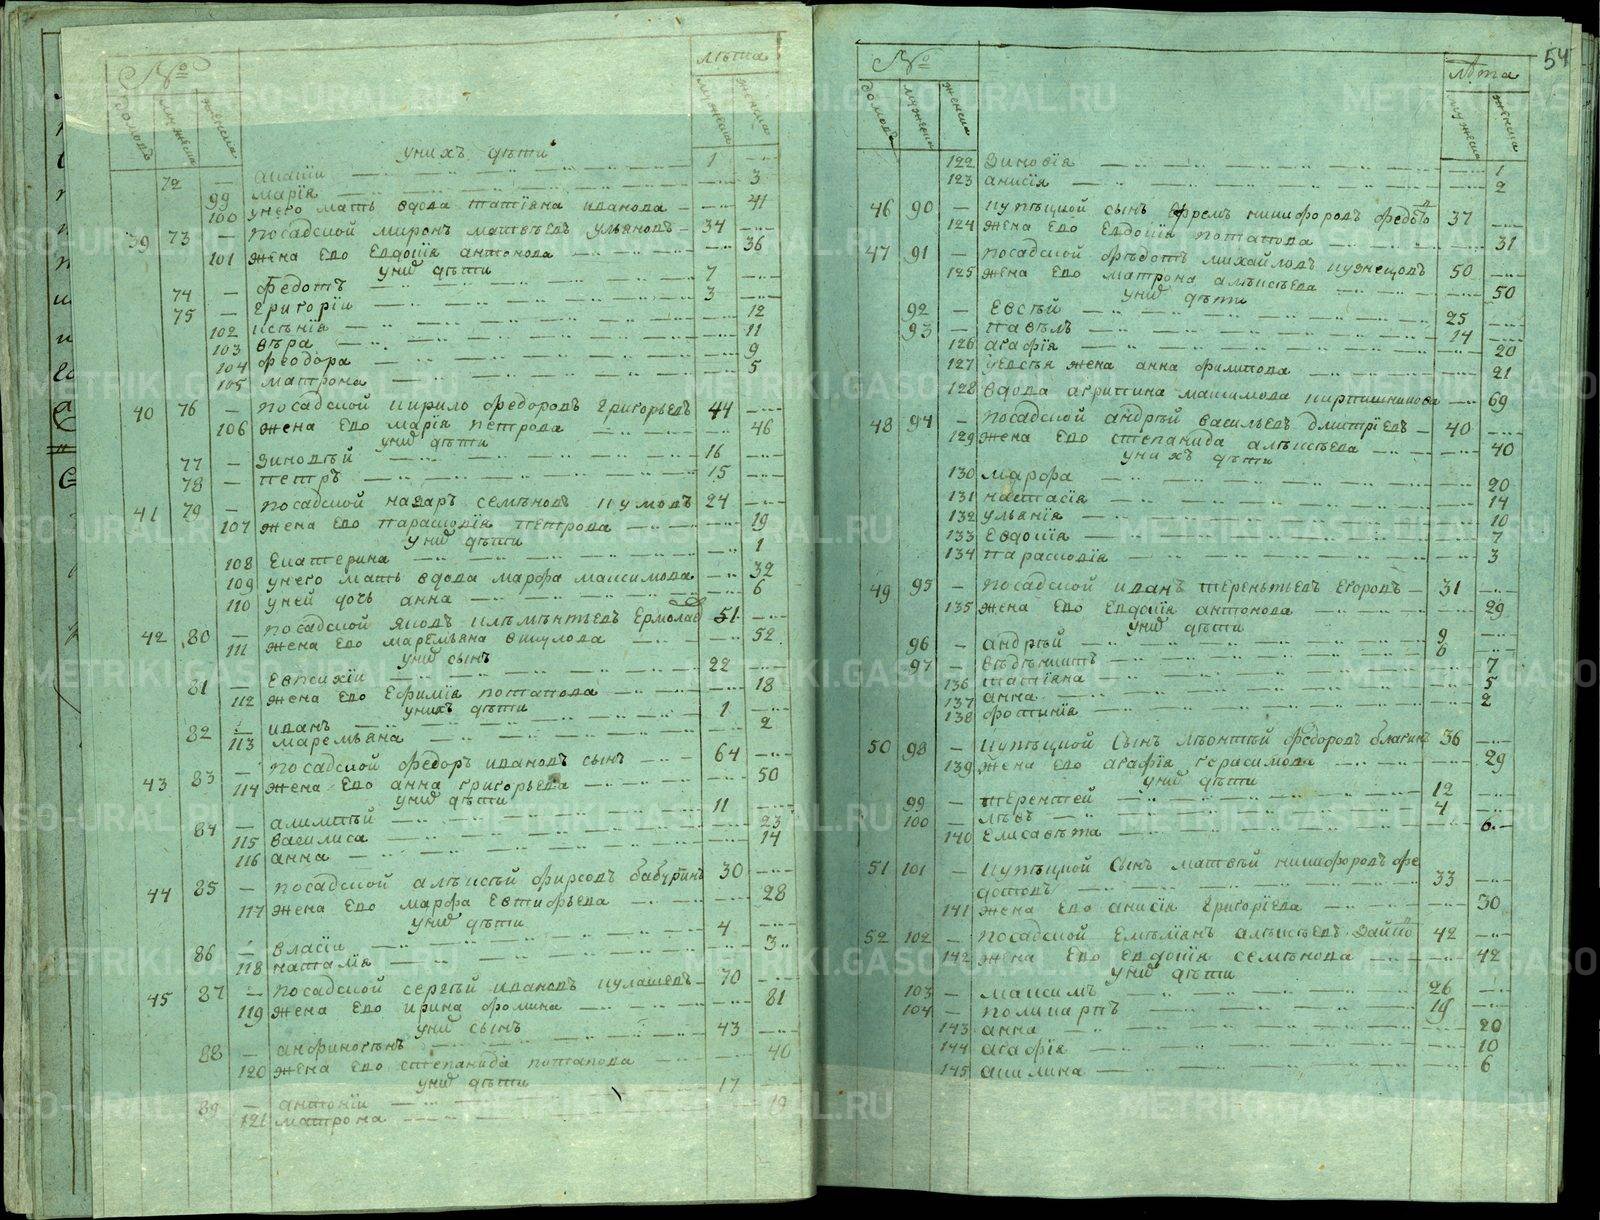 №
лѣта
домовъ
мужеска
женска
мужеска
женска
унихъ дѣти
72 — 1 —
99 Марїя — 3
100 унего мать вдова татїяна иванова — 41
39 73 — посадской миронъ матвѣевъ ульяновъ — 34 —
101 жена ево Евдокїя антонова — 36
униχ дѣти
74 — федотъ — 7 —
75 — Григорїи — 3 —
102 ксѣнїя — 12
103 вѣра — 11
104 феодора — 9
105 матрона — 5
40 76 — посадской кирило федоровъ григорьевъ 44 —
106 жена ево марїя петрова — 46
униχ дѣти
77 — Зиновѣй — 16 —
78 — петръ — 15 —
41 79 — посадской назаръ семѣновъ 24 —
107 жена ево параскодїя петрова — 19
униχ дѣти
108 Екатерина — 1
109 унего мать вдова марфа максимова — 32
110 уней дочь анна — 6
42 80 — посадской яковъ климѣнтьевъ Ермолаев 51 —
111 жена ево маремьяна викулова — 52
униχ сынъ
81 — Евпсихїи — 22 —
112 жена ево Ефимїя потапова — 18
унихъ дѣти
82 — иванъ — 1 —
113 маремьяна — 2
43 83 — посадской федоръ ивановъ сынъ — 64 —
114 жена ево анна григорьева — 50
униχ дѣти
84 — алимпѣй — 11 —
115 василиса — 23
116 анна — 14
44 85 — посадской алѣксѣй фирсовъ бабуринъ 30 —
117 жена ево марфа Евтифьева — 28
униχ дѣти
86 — власїи — 4 —
118 наталїя — 3
45 87 — посадской сергѣй ивановъ кулашевъ — 70 —
119 жена ево ирина фомина — 81
униχ сынъ
88 — анфиногѣнъ — 43 —
120 жена ево степанида потапова — 40
униχ дѣти
89 — антонїи — 17 —
121 матрона — 19
54
№
лѣта
домовъ
мужеска
женска
мужеска
женска
122 Зиновїя — 1
123 анисїя — 2
46 90 — купѣцкой сынъ Ефремъ никифоровъ федотоⷡ 37 —
124 жена ево Евдокїя потапова — 31
47 91 — посадской фѣдотъ михайловъ кузнецовъ 50 —
125 жена ево матрона алѣксѣева — 50
униχ дѣти
92 — Евсѣй — 25 —
93 — павѣлъ — 14 —
126 агафїя — 20
127 уевсѣя жена анна филипова — 21
128 вдова агрипина максимова кирпишникова — 69
48 94 — посадской андрѣй васильевъ дмитрїевъ — 40 —
129 жена ево степанида алѣксѣева — 40
унихъ дѣти
130 марфа — 20
131 настасїя — 14
132 ульянїя — 10
133 Евдокїя — 7
134 параскодїя — 3
49 95 — посадской иванъ терентьевъ егоровъ — 31 —
135 жена ево Евдокїя антонова — 29
униχ дѣти
96 — андрѣй — 9 —
97 — 6 —
136 татїяна — 7
137 анна — 5
138 фотинїя — 2
50 98 — купѣцкой сынъ лѣонтѣй федоровъ благинъ 36 —
139 жена ево агафїя герасимова — 29
униχ дѣти
99 — терентей — 12 —
100 — лѣвъ — 4 —
140 Елисавѣта — 6
51 101 — купѣцкой сынъ матвѣй никифоровъ фе
дотовъ — 33 —
141 жена ево анисїя григорїева — 30
52 102 — посадской Емѣлїянъ алѣксѣевъ зайкоⷡ 42 —
142 жена ево Евдокїя семѣнова — 42
униχ дѣти
103 — максимъ — 26 —
104 — поликарпъ — 19 —
143 анна — 20
144 агафїя — 10
145 акилина — 6
METRIKI.GASO-URAL.RU